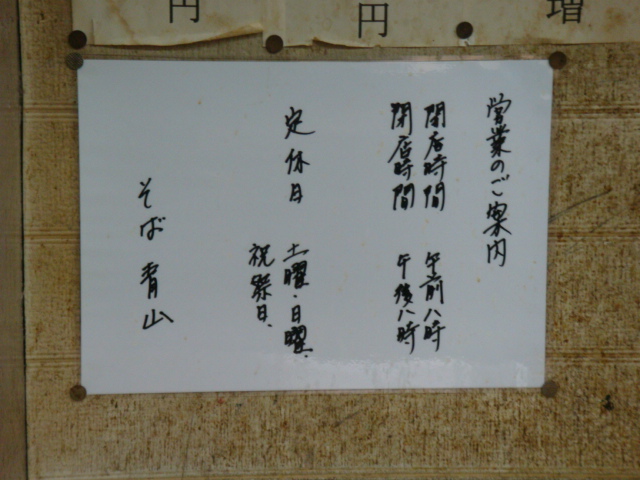 円
円
増
営業のご案内
開店時間 午前八時
閉店時間 午後八時
定休日 土曜・日曜、
祝祭日、
そば 青山